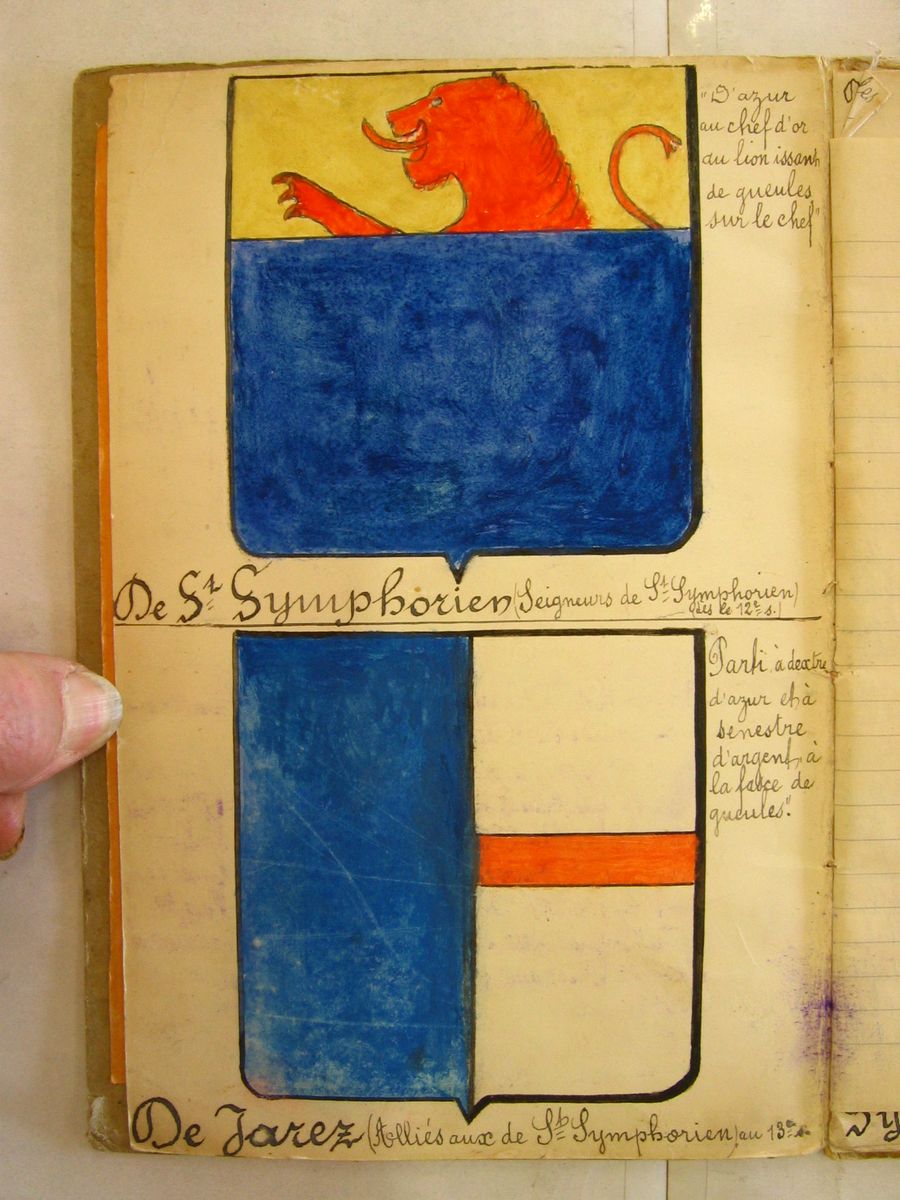 "D'azur
au chef d'or
au lion issant
de gueules
sur le chef"
De St Symphorien (Seigneurs de St Symphorien)
dès le 12e s.)
Parti, à dextre
d'azur et à
senestre
d'argent, à
la fasce de
gueules".
De Jarez (Alliés aux de St Symphorien) au 13e s.